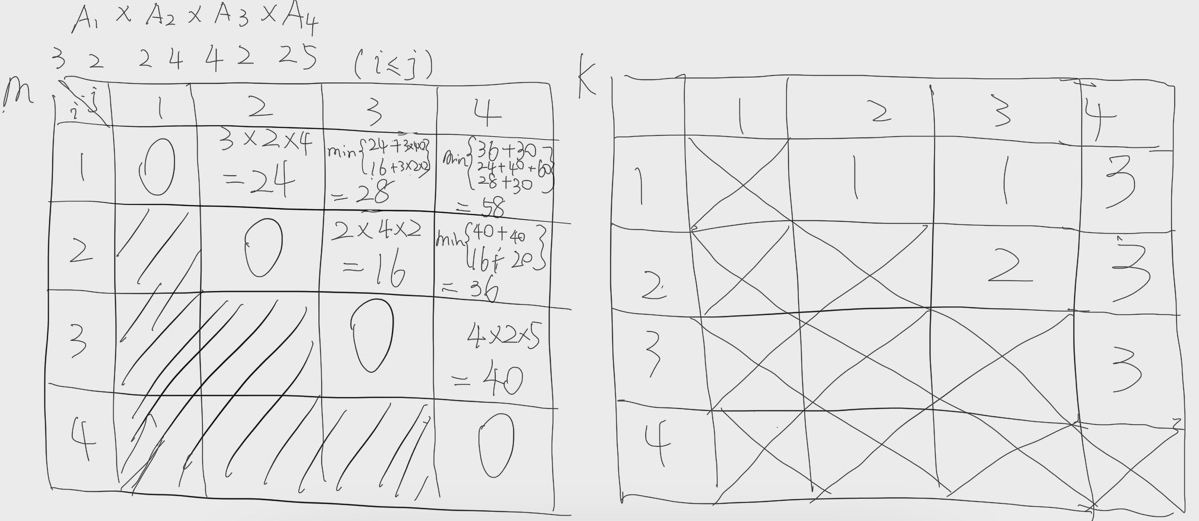 A₁ × A₂ × A₃ × A₄
3 2 2 4 4 2 2 5 (i≤j)
m
i j 1 2 3 4
1 0 3×2×4 =24 min{24+3×4×2 16+3×2×2} =28 min{36+30 24+40+60 28+30} =58
2 0 2×4×2 =16 min{40+40 16+20} =36
3 0 4×2×5 =40
4 0
K
1 2 3 4
1 1 1 3
2 2 3
3 3
4